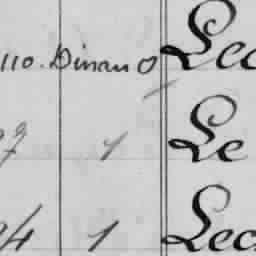 110. Dinan Lec
1 Le
24 1 Lec